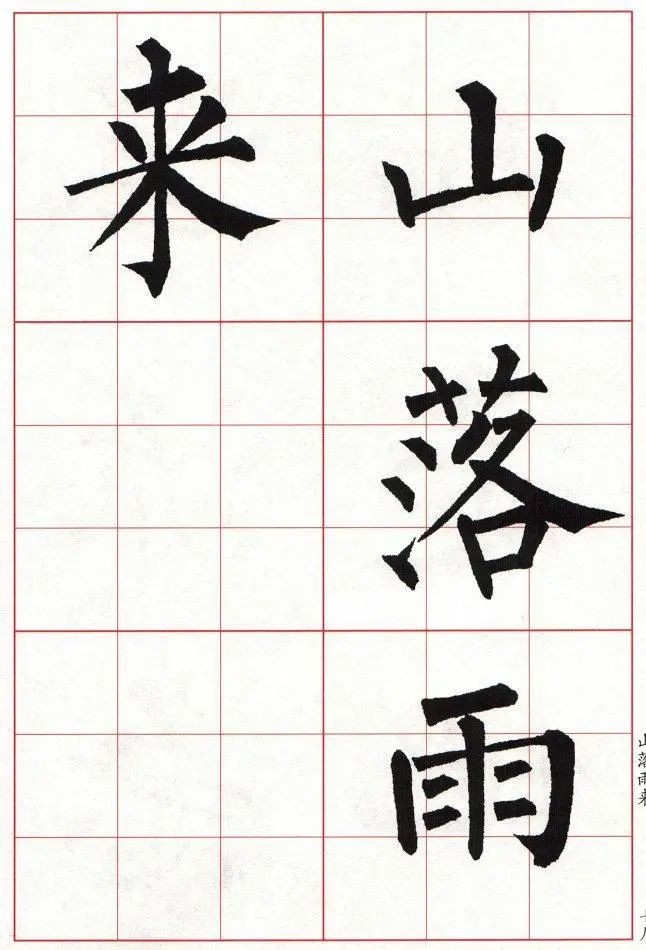 山落雨
来
山落雨来
七八